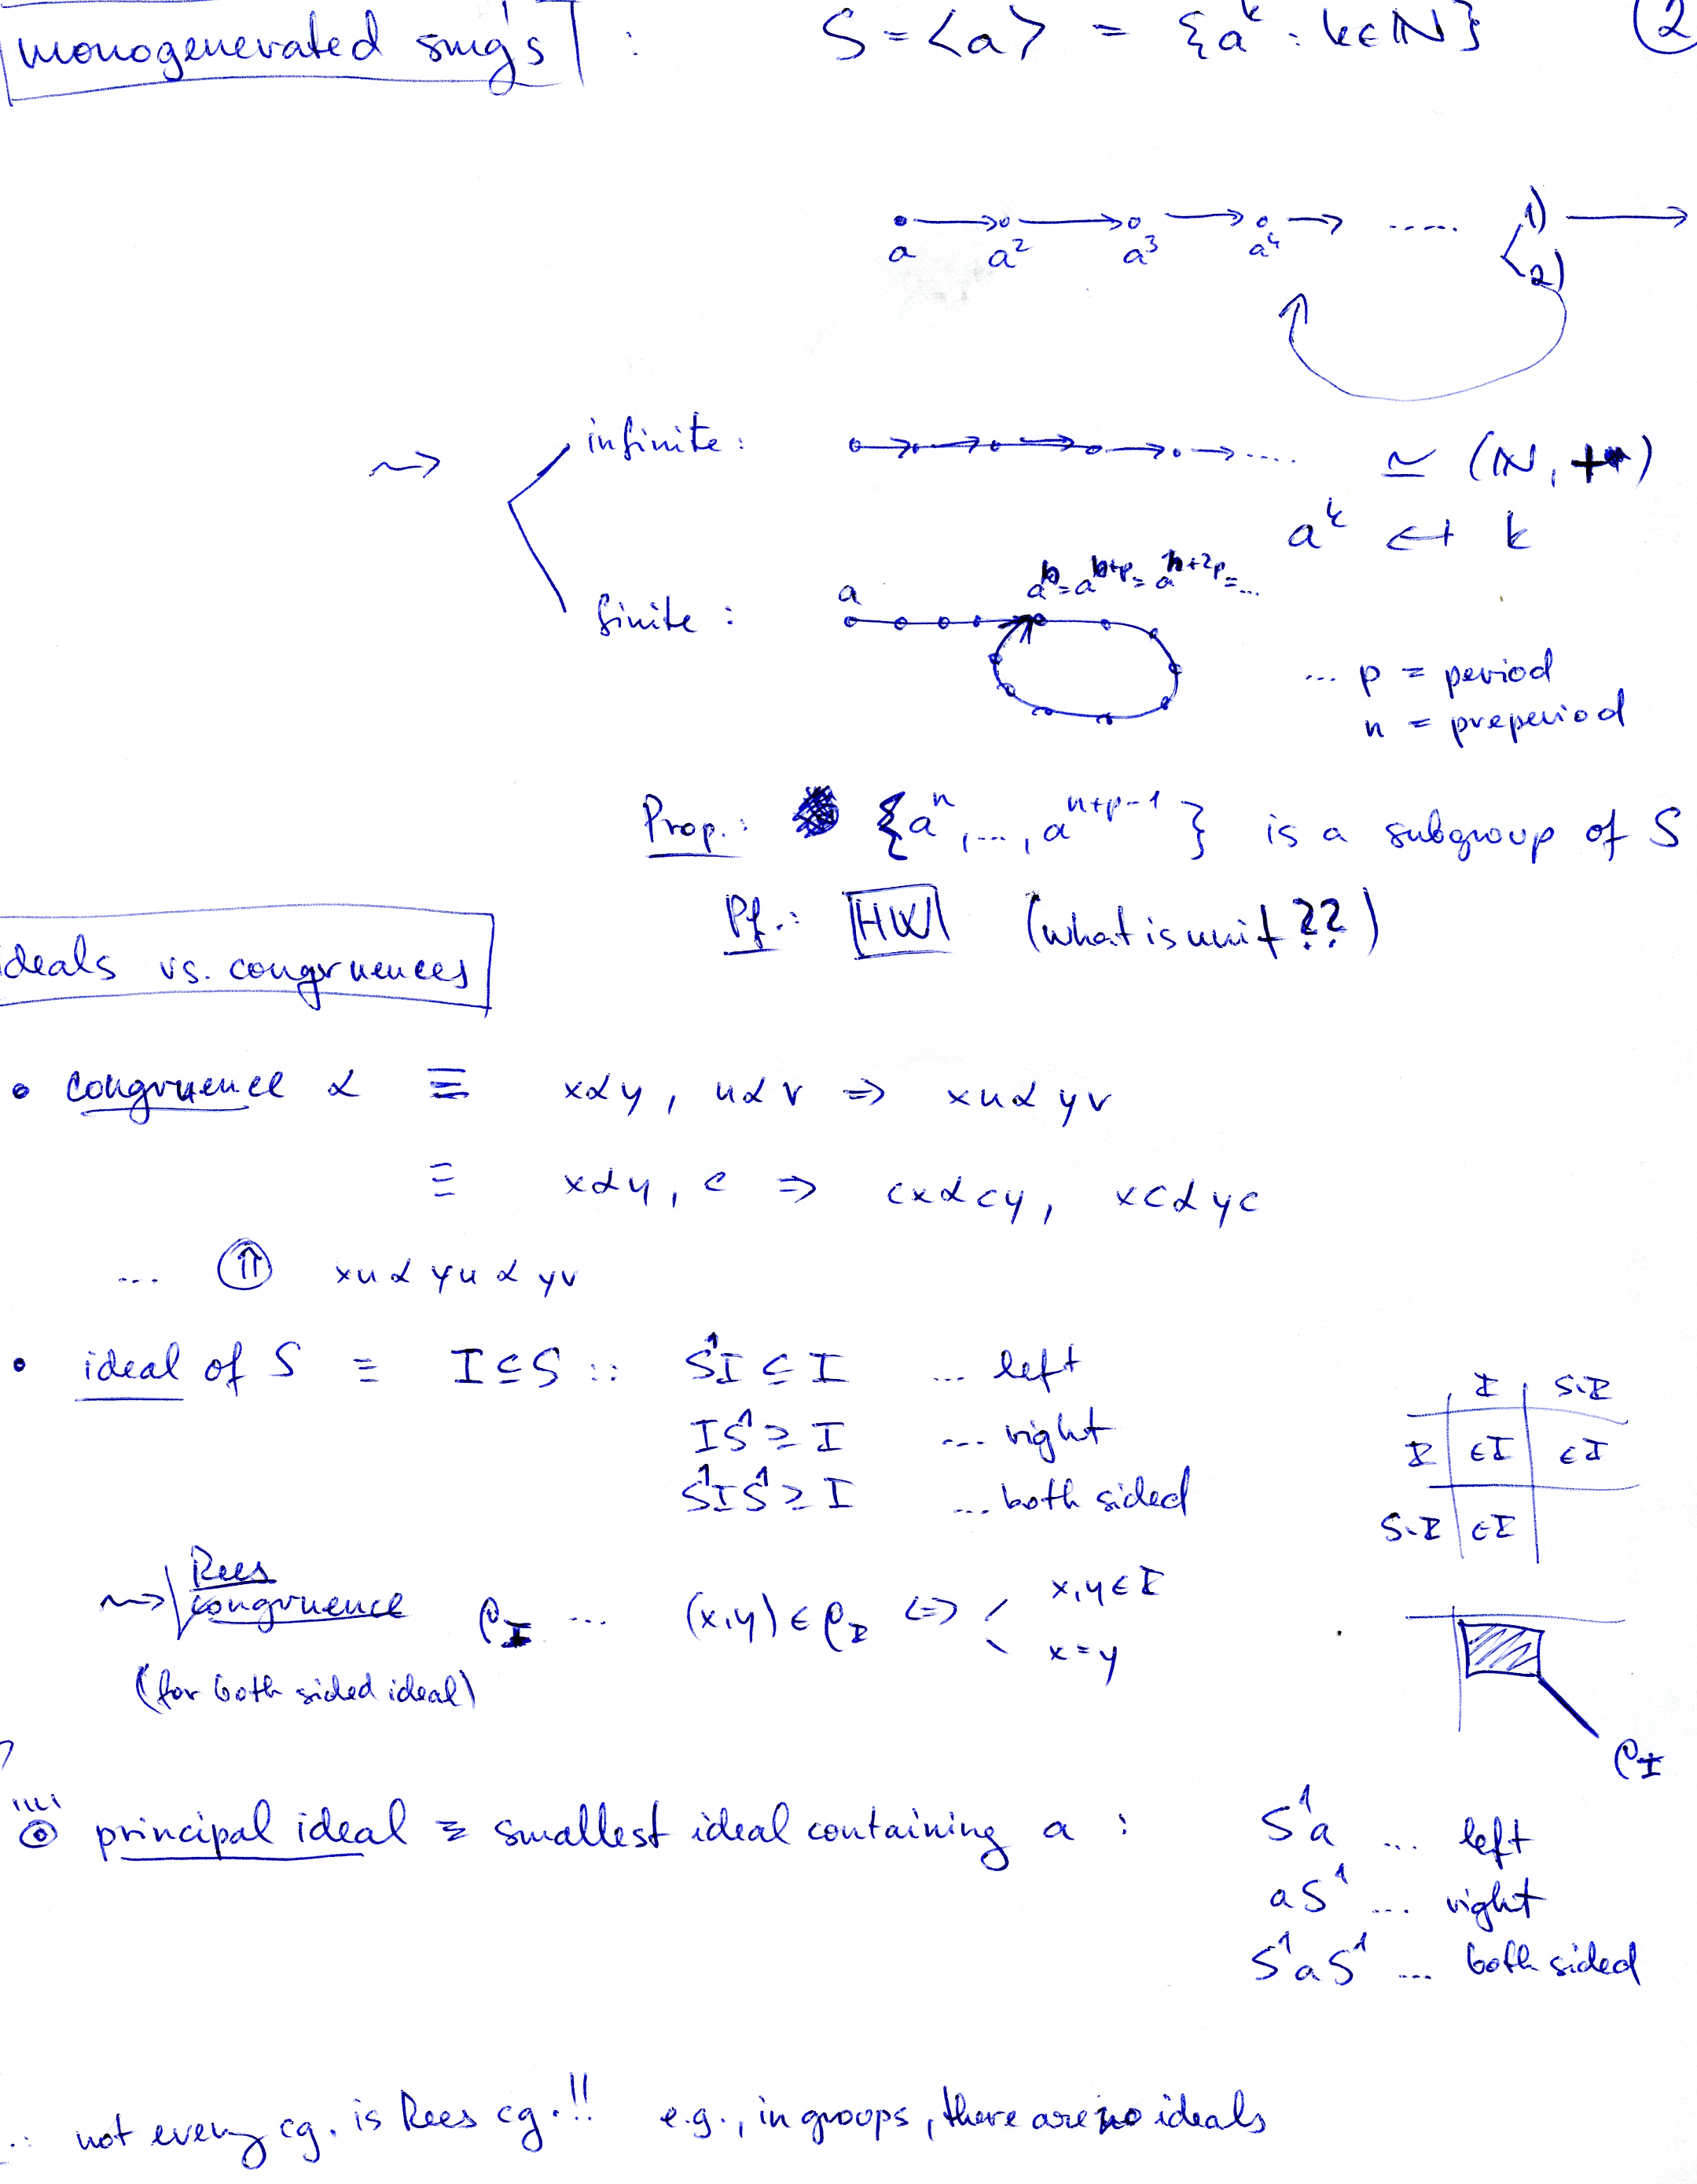 monogenerated smg's : S = <a> = {a^k : k∈N} 2
a a² a³ a⁴ ..... 1) →
2)
⇝ infinite: .... ≃ (N, +)
a^k ↔ k
a^n = a^{n+p} = a^{n+2p} = ...
finite : a
... p = period
n = preperiod
Prop.: {a^n, ..., a^{n+p-1}} is a subgroup of S
Pf.: HW (what is unit ??)
ideals vs. congruences
• congruence α ≡ xαy, uαv ⇒ xuα yv
≡ xαy, c ⇒ cxαcy, xcαyc
... ⇑ xuα yu α yv
• ideal of S ≡ I⊆S :: S¹I ⊆ I ... left
IS¹ ⊇ I ... right
S¹IS¹ ⊇ I ... both sided
I S∖I
I ∈I ∈I
S∖I ∈I
⇝ Rees
congruence ρ_I ... (x,y) ∈ ρ_I ⇔ x,y∈I
x=y
(for both sided ideal)
ρ_I
principal ideal ≡ smallest ideal containing a : S¹a ... left
aS¹ ... right
S¹aS¹ ... both sided
.: not every cg. is Rees cg. !! e.g., in groups, there are no ideals